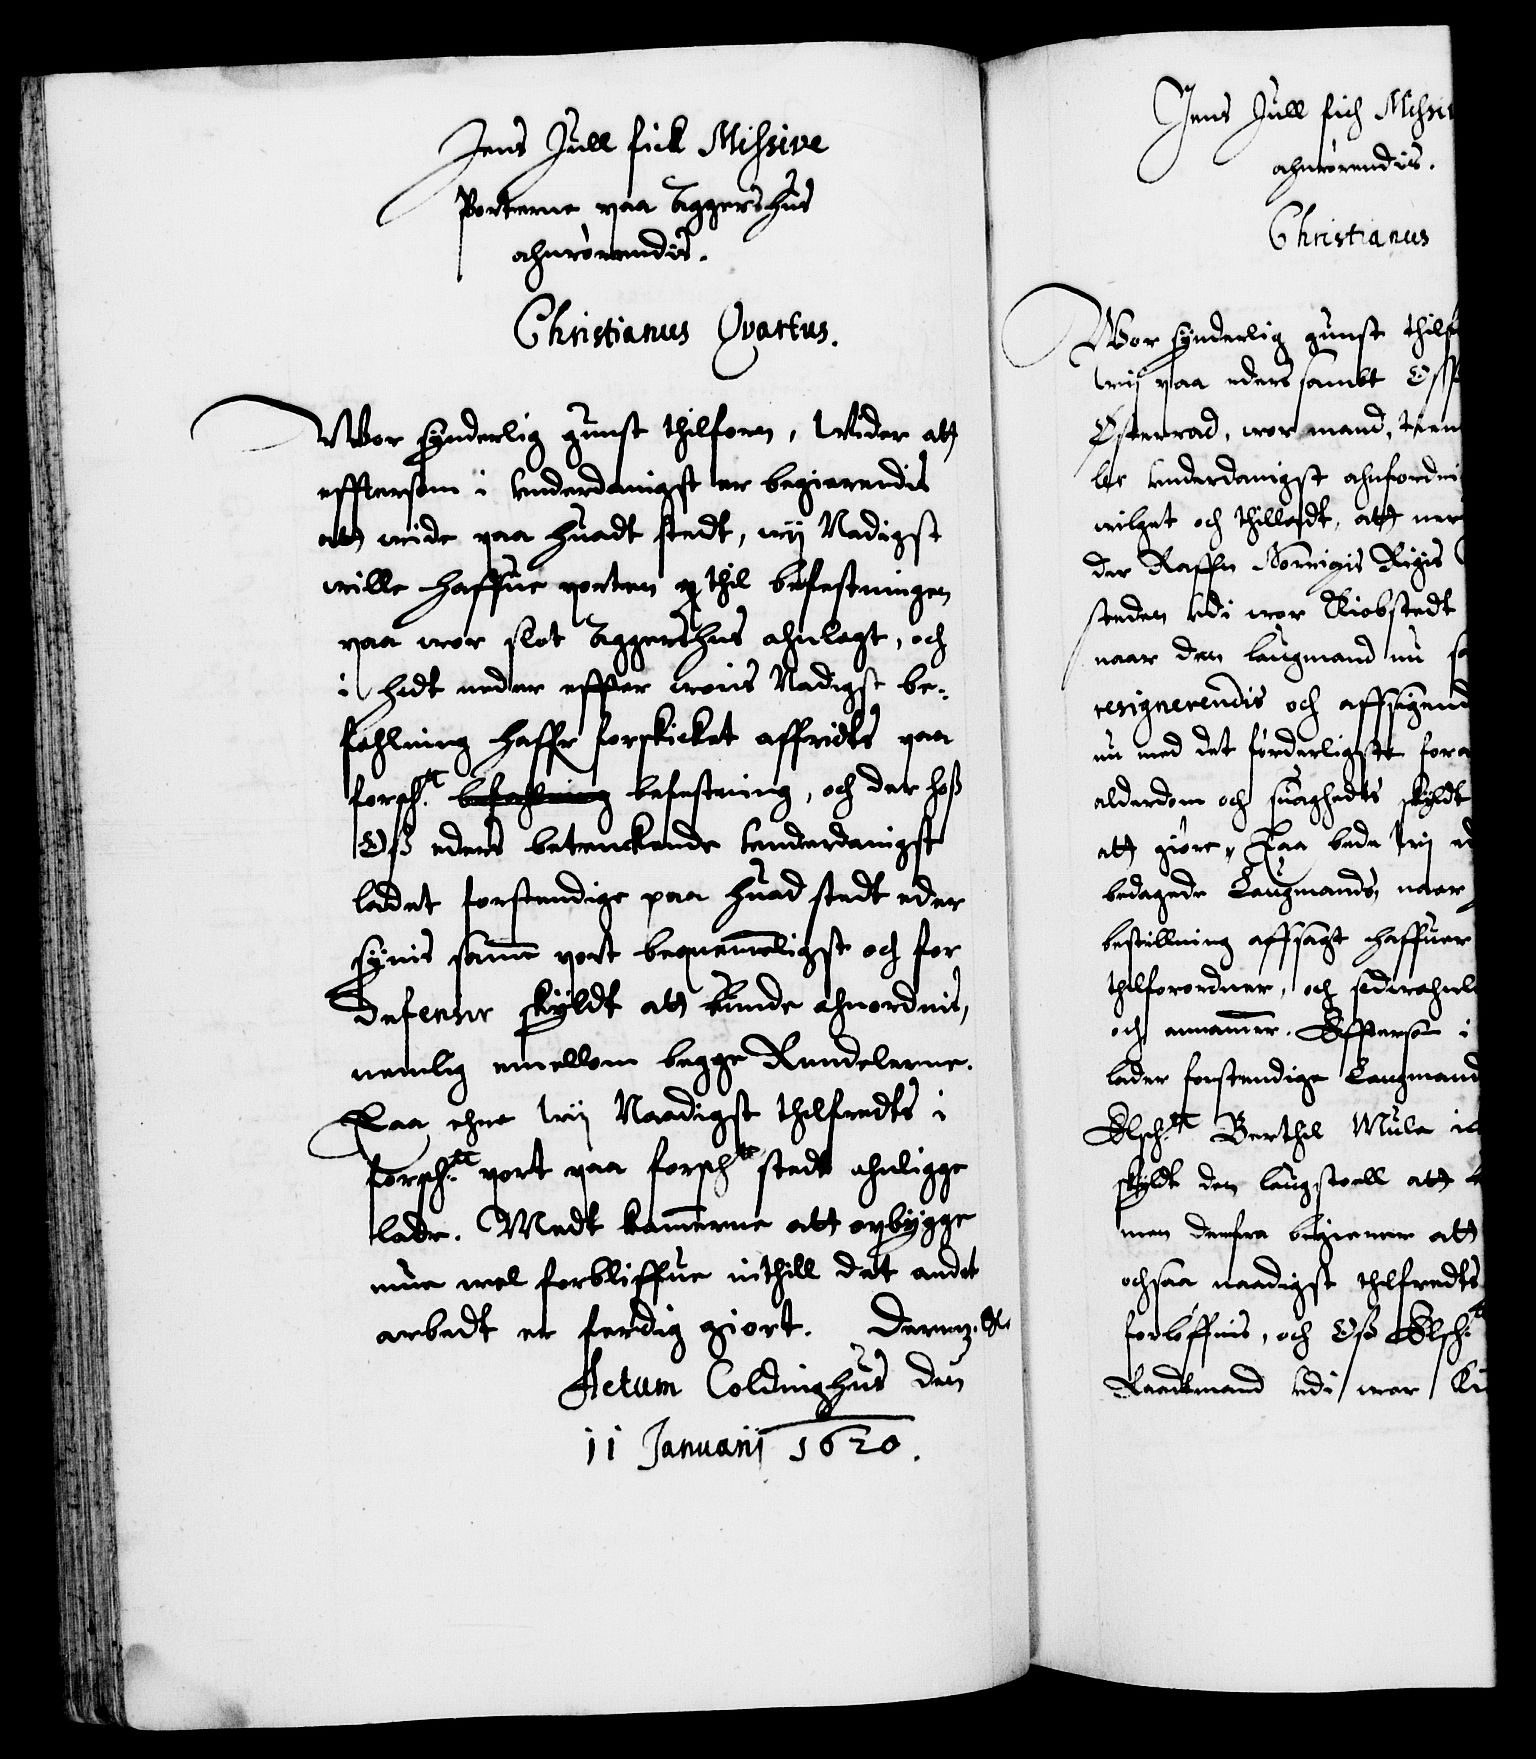 Jens Juell fick Missive
Porterne paa Aggershus
ahnrörendis.
Christianus Qvartus.
Wor synderlig gunst thilforn, Wider att
efftersom i Underdanigst er begierendis
att wide paa huadt stedt, wij Nadigst
wille haffue porten thil befestningen
paa wor slot Aggershus ahnlagt, och
i hidt neder effter woris Nadigst be-
fehlning haffr forskicket affridts paa
forsch:te befahling befestning, och der hoß
Oß eders betenckende Underdanigst
ladet forstendige paa huad stedt eder
synis samme port bequemmeligst och for
defensir skyldt att kunde ahnordnis,
nemlig emellom begge Rundelerne.
Saa ehre wij Naadigst thilfredts i
forsch:te port paa forschte stedt ahnligge
lader. Medt kamerne att opbygge
mue wel forbliffue inthill det andet
arbedt er ferdig giort. Dermz. &c
Actum Coldinghus den
11 Januarij 1620.
Jens Juell fich Missi
ahnrörendis.
Christianus
Wor synderlig gunst thilf
wij paa eders sambt Off
Osterrad, wor mand, tien
ler Underdanigst ahnfordni
wilget och thilladt, att ner
der Raffn Norrigis Rigis
steden udi wor Kiobstedt
naar den laugmand nu sa
resignerendis och affsigend
nu med det förderligste fora
alderdom och suaghedts skyldt
att giöre, Saa bede wij ed
bedagede Laugmands, naar
bestillning affsagt haffuer
thilforordner, och sidwahnl
och annammer. Effterson i
lader forstendige Laugmand
Elsch:te Berthel Mule i
skyldt den laugstoell att
men derfra begierer att
ochsaa naadigst thilfredts
forlöffuis, och Oß Elsch:te
Raadtmand udi wor Ki